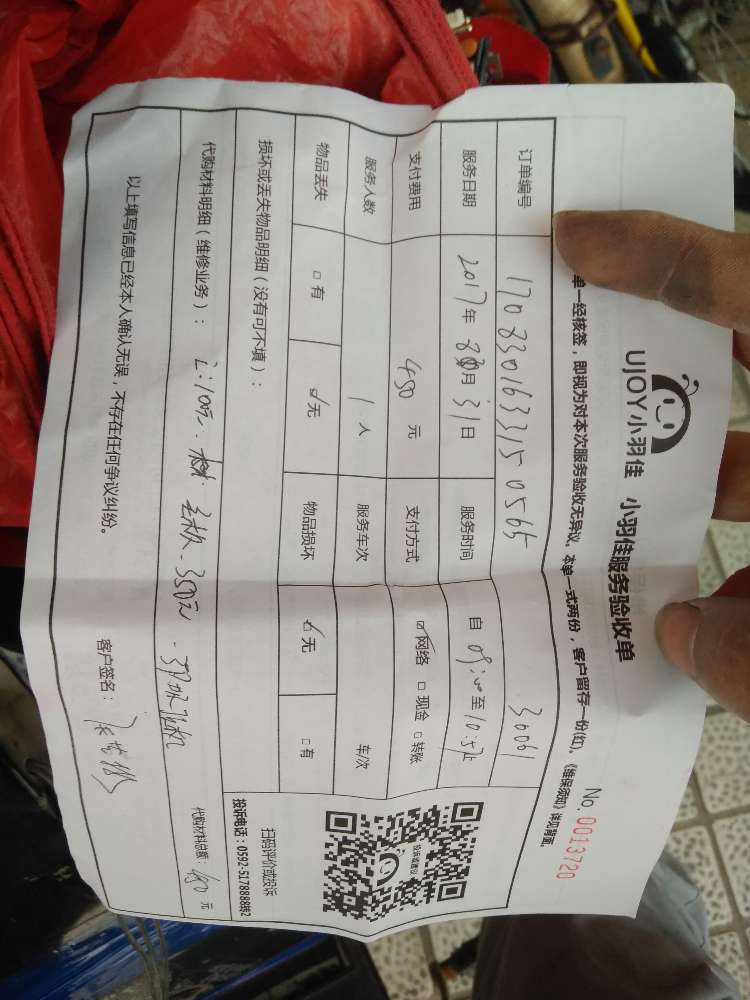 UJOY小羽佳 小羽佳服务验收单
No. 0013720
单一经核签，即视为对本次服务验收无异议。本单一式两份，客户留存一份(红)。《维保须知》详见背面。
订单编号 170830163315 0565 30061
服务日期 2017年 8月 31日 服务时间 自 09:00至10:57止
支付费用 450 元 支付方式 ☑网络 □现金 □转账
服务人数 1 人 服务车次 车/次
物品丢失 □有 ☑无 物品损坏 ☑无 □有
损坏或丢失物品明细（没有可不填）：
扫码评价或投诉
投诉电话：0592-5178888转2
投诉或建议
代购材料明细（维修业务）： 工:100元. 主板.350元
代购材料总额： 450 元
以上填写信息已经本人确认无误，不存在任何争议纠纷。
客户签名：